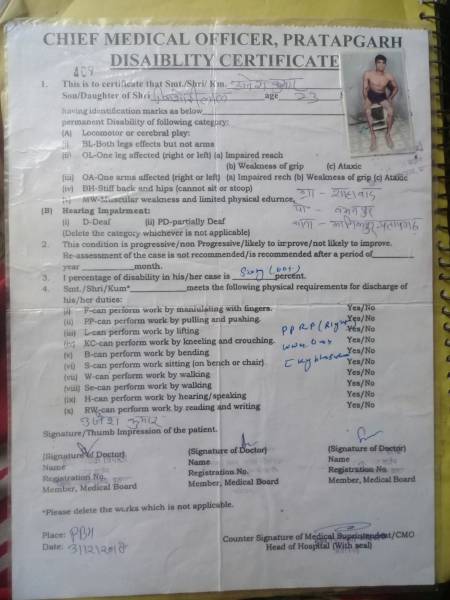 CHIEF MEDICAL OFFICER, PRATAPGARH
DISABLITY CERTIFICATE
409
1. This is to certificate that Smt./Shri/ Km.
Son/Daughter of Shri age 23
having identification marks as below
permanent Disability of following category:
(A) Locomotor or cerebral play:
(i) BL-Both legs effects but not arms
(ii) OL-One leg affected (right or left) (a) Impaired reach
(b) Weakness of grip (c) Ataxic
(iii) OA-One arms affected (right or left) (a) Impaired rech (b) Weakness of grip (c) Ataxic
(iv) BH-Stiff back and hips (cannot sit or stoop)
MW-Muscular weakness and limited physical edurnce
(B) Hearing Impairment:
(i) D-Deaf (ii) PD-partially Deaf
(Delete the category whichever is not applicable)
2. This condition is progressive/non Progressive/likely to improve/not likely to improve.
Re-assessment of the case is not recommended/is recommended after a period of
year month.
3. I percentage of disability in his/her case is percent.
4. Smt./Shri/Kum* meets the following physical requirements for discharge of
his/her duties:
(i) F-can perform work by maniulating with fingers. Yes/No
(ii) PP-can perform work by pulling and pushing. Yes/No
(iii) L-can perform work by lifting Yes/No
(iv) KC-can perform work by kneeling and crouching. Yes/No
(v) B-can perform work by bending Yes/No
(vi) S-can perform work sitting (on bench or chair) Yes/No
(vii) W-can perform work by walking Yes/No
(viii) Se-can perform work by walking Yes/No
(ix) H-can perform work by hearing/speaking Yes/No
(x) RW-can perform work by reading and writing Yes/No
कुमार
Signature/Thumb Impression of the patient.
(Signature of Doctor) (Signature of Doctor) (Signature of Doctor)
Name Name Name
Registration No. Registration No. Registration No.
Member, Medical Board Member, Medical Board Member, Medical Board
*Please delete the works which is not applicable.
Place: PBH
Date:
Counter Signature of Medical Superintendent/CMO
Head of Hospital (With seal)